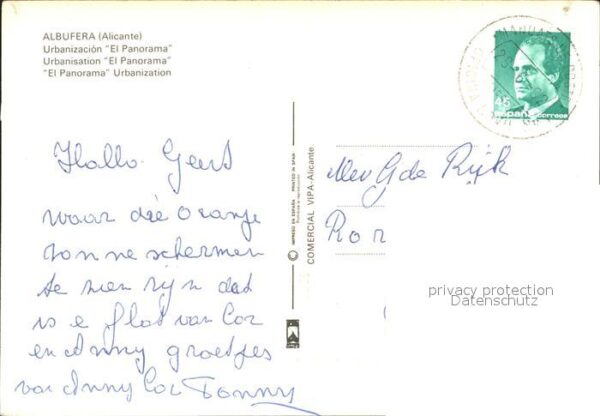 ALBUFERA (Alicante)
Urbanización "El Panorama"
Urbanisation "El Panorama"
"El Panorama" Urbanization
45
España correos
Hallo Geert
waar die Oranje
zonneschermen
te zien zijn dat
is e flat van Cor
en Anny groetjes
van Anny Cor Tonny
IMPRESO EN ESPAÑA PRINTED IN SPAIN
COMERCIAL VIPA-Alicante
Mev G de Rijk
Ror
privacy protection
Datenschutz